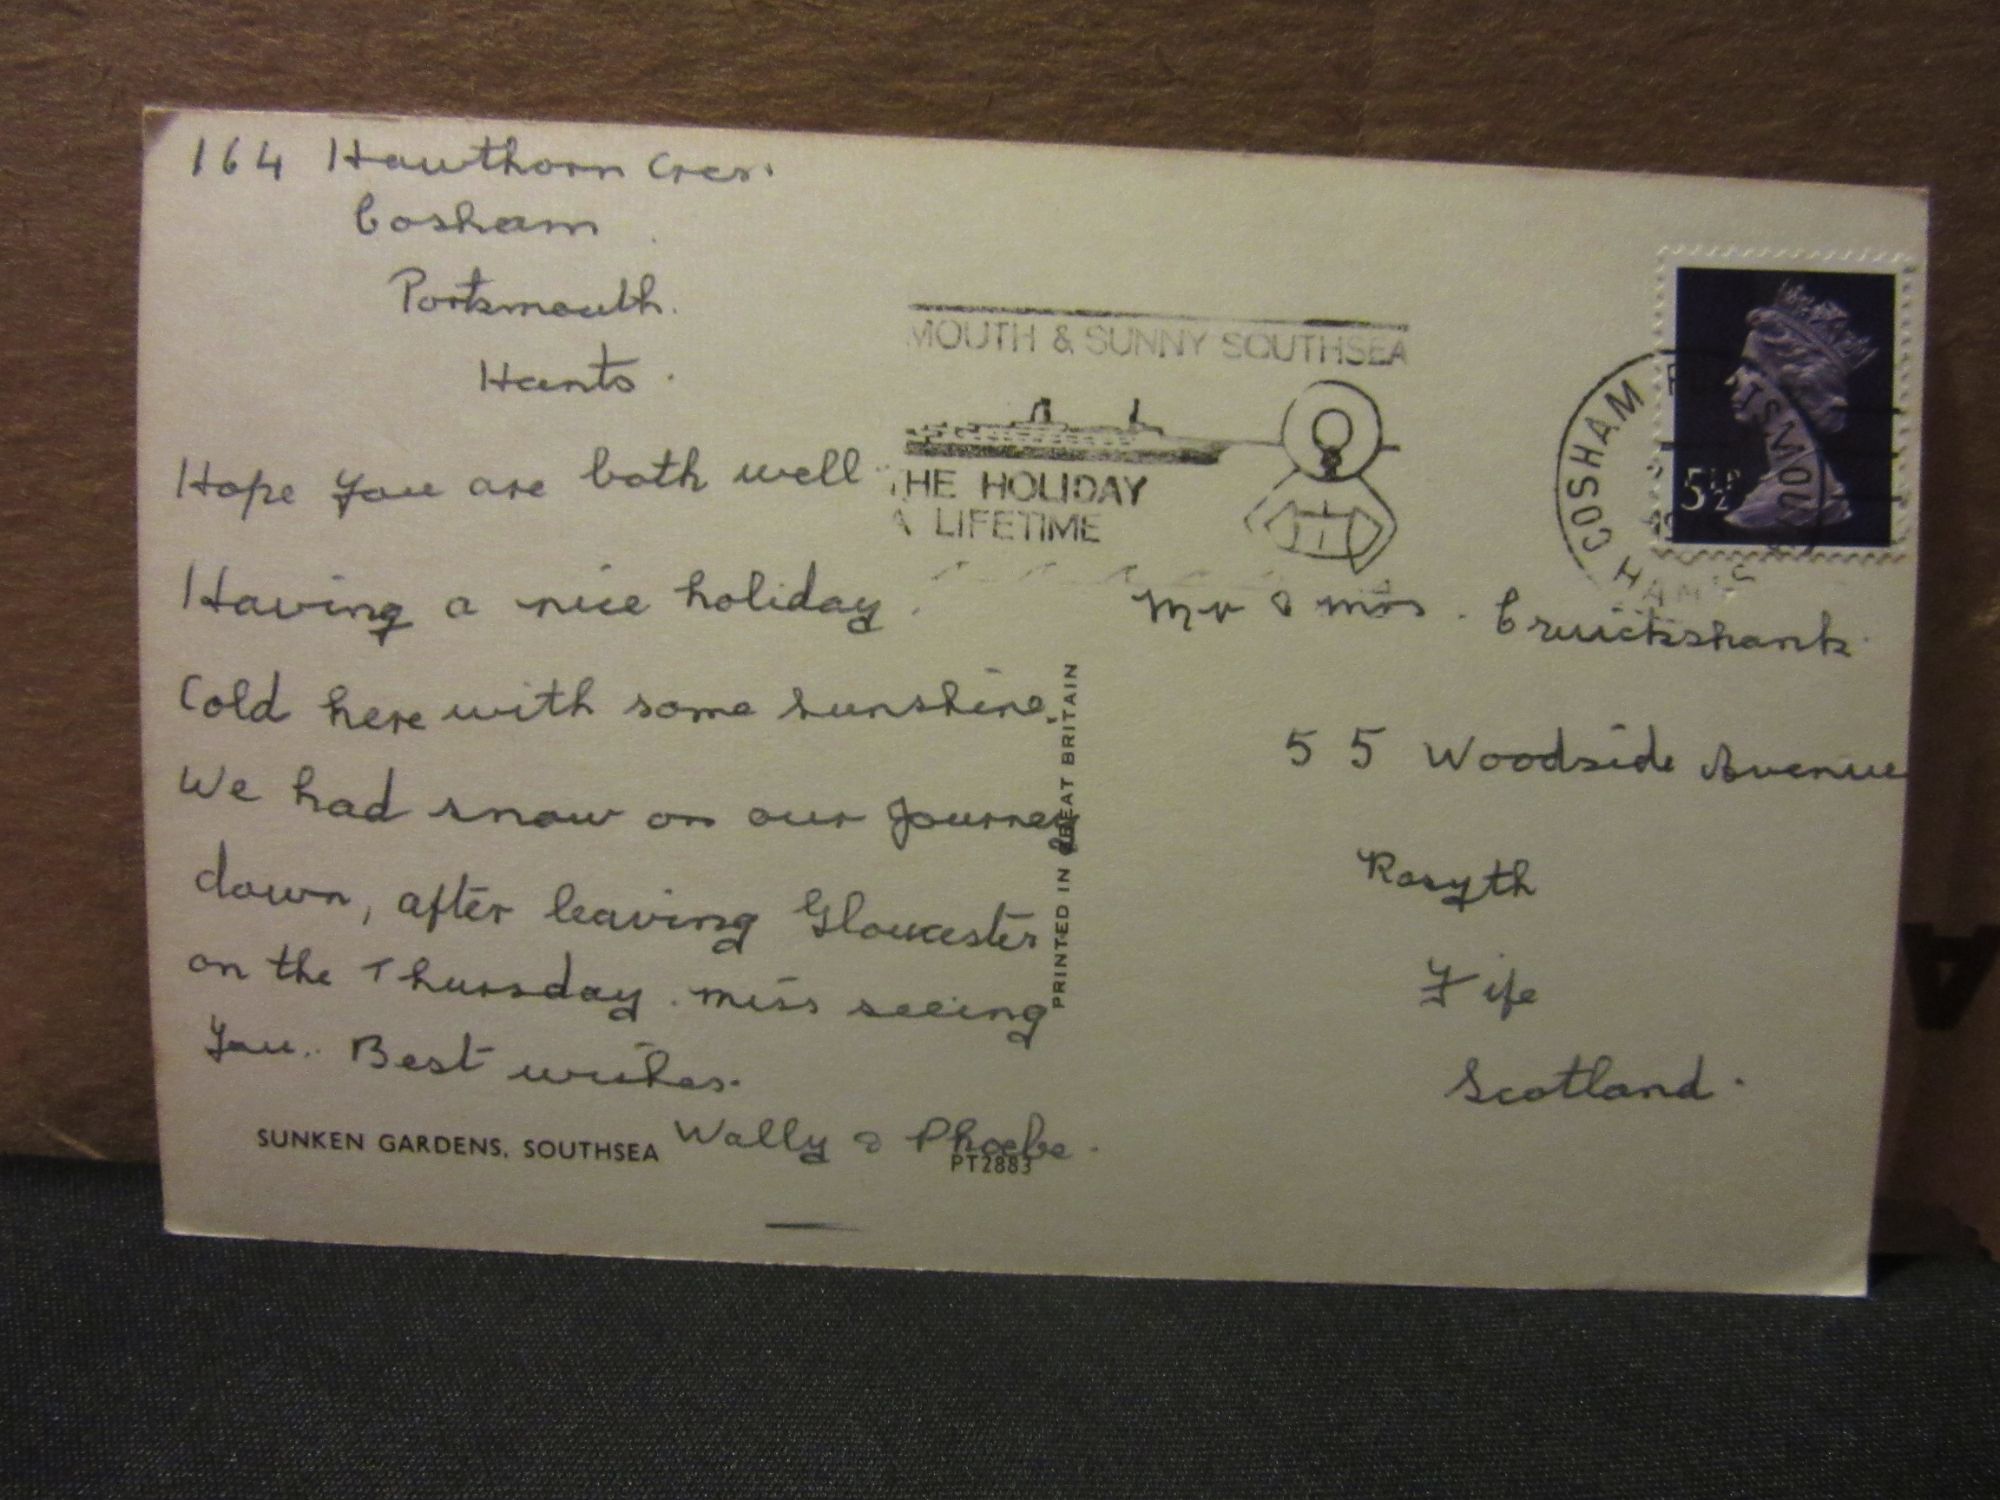 164 Hawthorn Cres.
Cosham
Portsmouth.
Hants.
Hope you are both well
Having a nice holiday.
Cold here with some sunshine.
We had snow on our journey
down, after leaving Gloucester
on the Thursday. miss seeing
you.. Best wishes.
Wally & Phoebe.
SUNKEN GARDENS, SOUTHSEA
PT2883
PRINTED IN GREAT BRITAIN
MOUTH & SUNNY SOUTHSEA
THE HOLIDAY
A LIFETIME
COSHAM PORTSMOU
HANTS
5½P
Mr & Mrs. Cruickshank.
55 Woodside Avenue
Rosyth
Fife
Scotland.